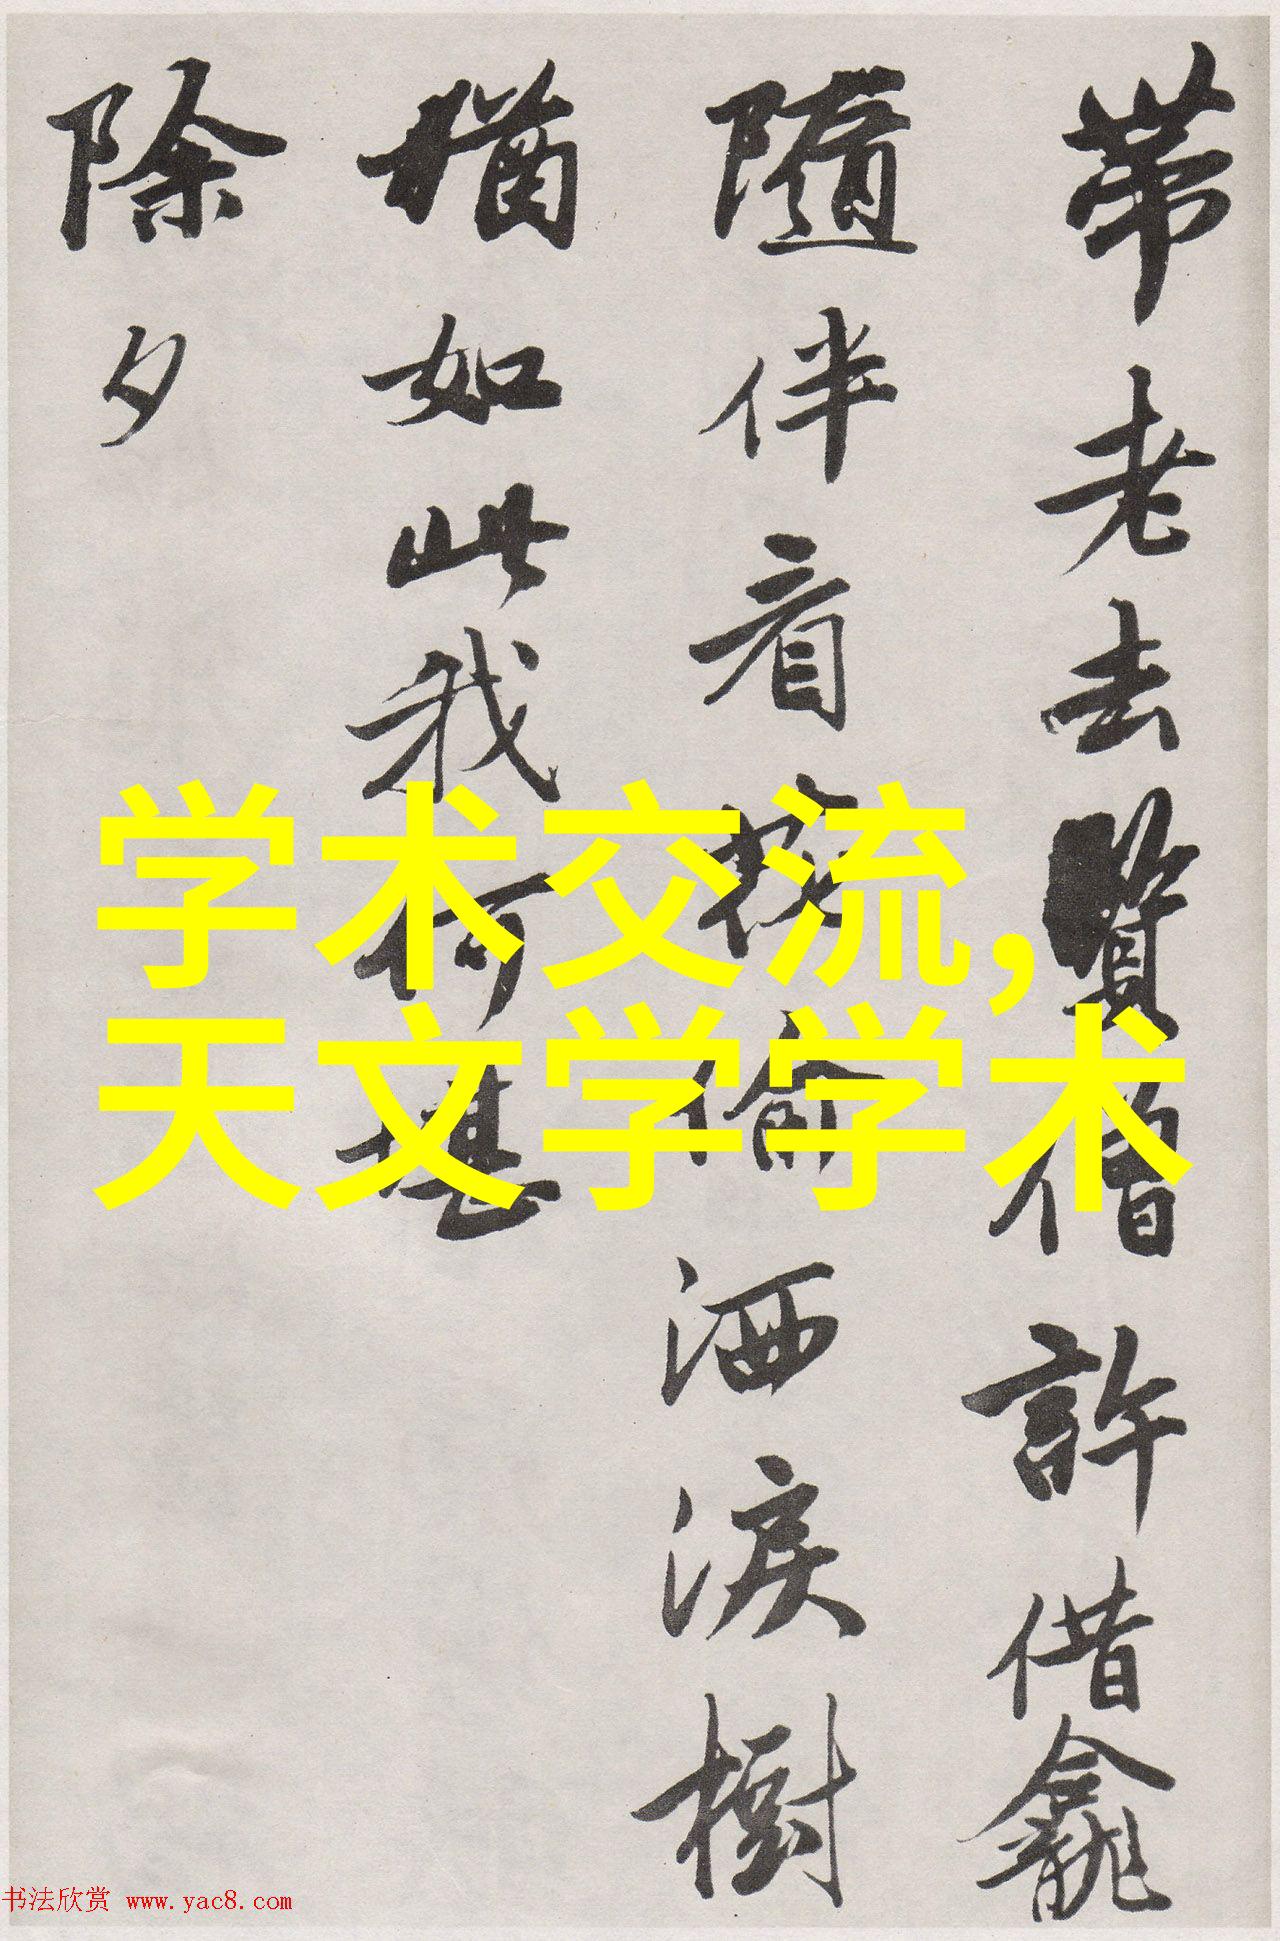 帶老去許借龕
隨伴看洒淚樹
猶如此我何堪
除夕
学术交流,
天文学学术
书法欣赏 www.yac8.com